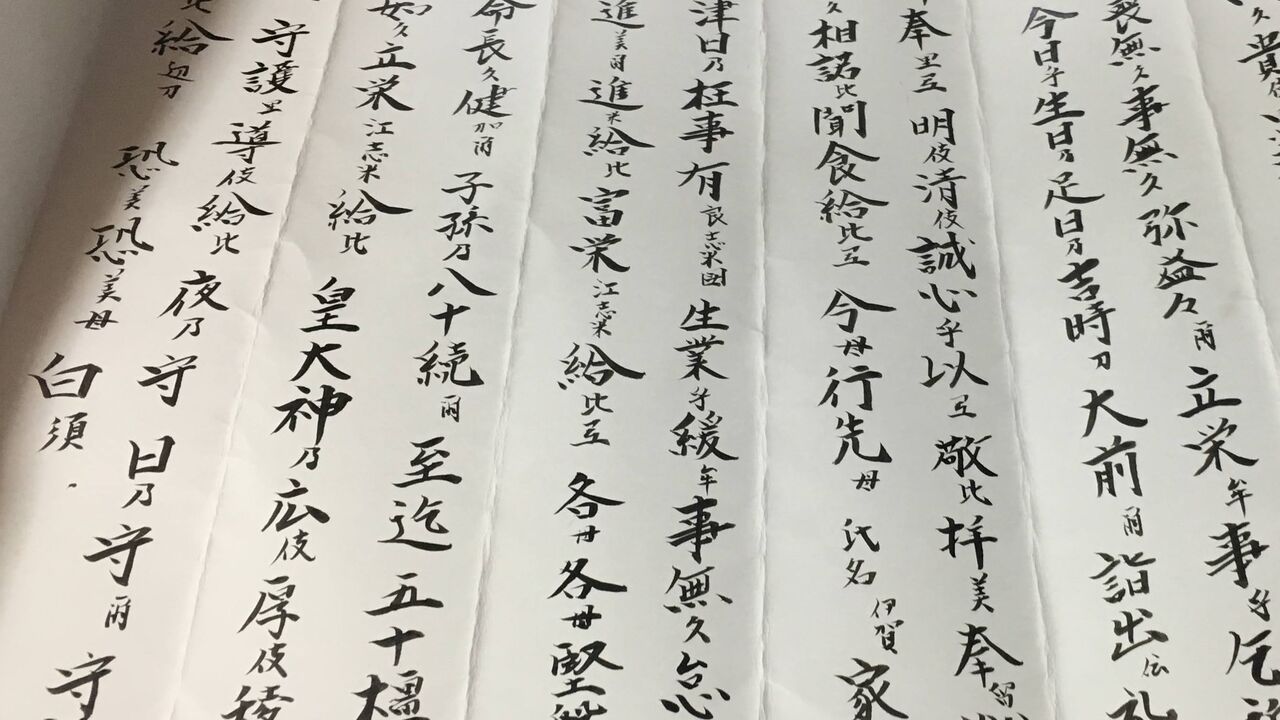 久貴
喪無久事無久弥益々爾立栄牟事乎乞
今日乎生日乃足日乃吉時刀大前爾詣出伝礼
奉里弖明伎清伎誠心乎以弖敬比拝美奉留
久相諾比聞食給比弖今母行先母 氏名 伊賀家
津日乃枉事有良志米受生業乎緩牟事無久怠
進美爾進米給比富栄江志米給比弖各母各母堅
命長久健加爾子孫乃八十続爾至迄五十橿
如久立栄江志米給比皇大神乃広伎厚伎稜
守護里導伎給比夜乃守日乃守爾守
比給辺刀恐美恐美母白須